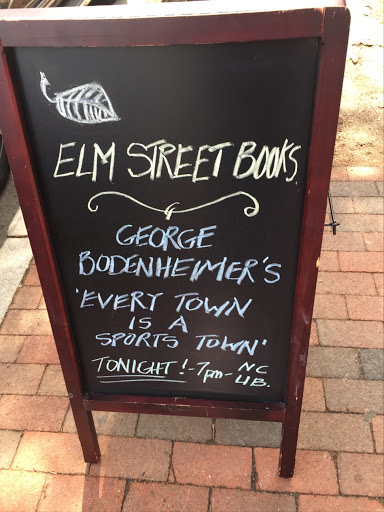 ELM STREET BOOKS
GEORGE
BODENHEIMER'S
'EVERY TOWN
IS A
SPORTS TOWN'
TONIGHT! - 7pm - NC
LIB.